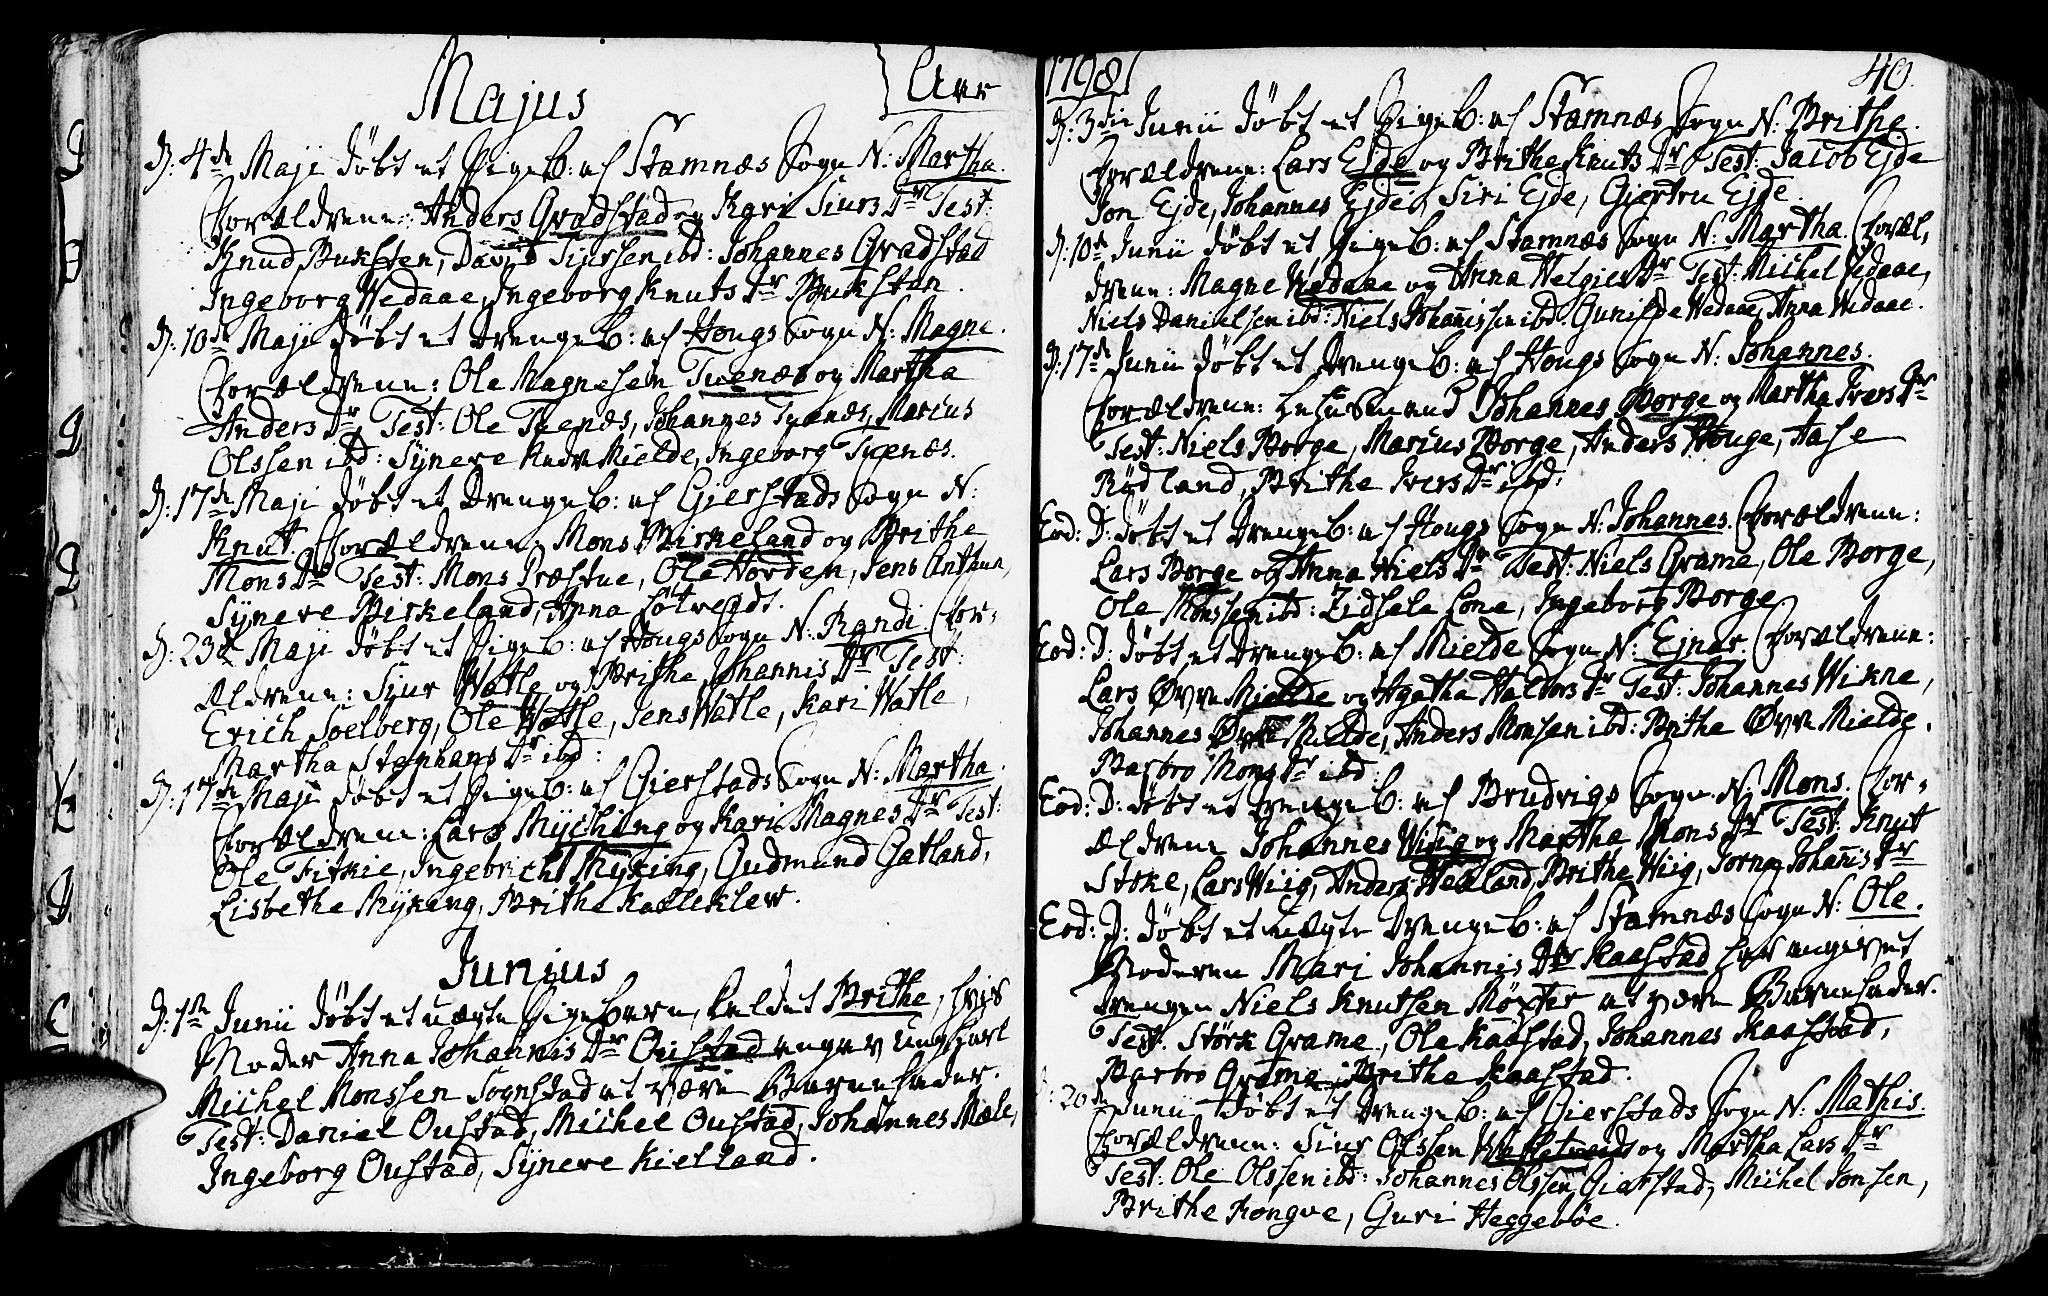 Majus
Aar
D: 4de Maji døbt et Pigeb: af Stamnæs Sogn N: Martha.
Forældrene: Anders Gradstad og Kari Siurs Dr Test:
Knud Buksten, David Siursen ibd: Johannes Gradstad
Ingeborg Wedaae, Ingeborg Knuts Dr Bukstan.
D: 10de Maji døbt et Drengeb: af Hougs Sogn N: Magne.
Forældrene: Ole Magnesen Tuenæs og Martha
Anders Dr, Test: Ole Tuenæs, Johannes Tuenæs, Marius
Olssen ibd: Synere Mielde, Ingeborg Tuenæs.
D: 17de Maji døbt et Drengeb: af Gierstads Sogn N:
Knut. Forældrene: Mons Birkeland og Brithe
Mons Dr Test: Mons Præstue, Ole Horden, Jens Anthun,
Synere Birkeland, Anna Løtveidt.
D: 23de Maji døbt et Pigeb: af Hougs Sogn N: Randi. For-
ældrene: Sjur Watle og Brithe Johannis Dr Test:
Erich Soelberg, Ole Watle, Jens Watle, Kari Watle,
Martha Stephans Dr ibd:
D: 17de Maji døbt et Pigeb: af Gierstads Sogn N: Martha.
Forældrene: Lars Myching og Kari Magnes Dr Test:
Ole Fitkie, Ingebricht Myking, Gudmund Gatland,
Lisbethe Myking, Brithe Kalleklew.
Junius
D: 1ste Junii døbt et uægte Pigebarn, kaldet Brithe, hvis
Moder Anna Johannis Dr Oustad angav Ungkarl
Michel Monssen Sognstad at være Barnefader.
Test: Daniel Oustad, Michel Oustad, Johannes Mæle,
Ingeborg Oustad, Synere Kielland.
1798
40.
D: 3die Junii døbt et Pigeb: af Stamnæs Sogn N: Brithe.
Forældrene: Lars Ejde og Brithe Knuts Dr Test: Jacob Ejde
Jon Ejde, Johannes Ejde, Siri Ejde, Giertru Ejde
D: 10de Junii døbt et Pigeb: af Stamnæs Sogn N: Martha. Foræl,
drene: Magne Wedaae og Anna Helgies Dr Test: Michel Wedaae,
Niels Danielsen ibd: Niels Johannissen ibd. Gunilde Wedaae, Anna Wedaae.
D: 17de Junii døbt et Drengeb: af Hougs Sogn N: Johannes.
Forældrene: Johannes Borge og Martha Ivers Dr
Test: Niels Borge, Marius Borge, Anders Houge, Aase
Rødland, Brithe Ivers Dr ibd:
Eod: D: døbt et Drengeb: af Hougs Sogn N: Johannes. Forældrene:
Lars Borge og Anna Niels Dr Test: Niels Grame, Ole Borge,
Ole Monssen ibd: Zidsele Lone, Ingeborg Borge
Eod: D: døbt et Drengeb: af Mielde Sogn N: Ejnar. Forældrene:
Lars Øvre Mielde og Agatha Haldors Dr Test: Johannes Wikne,
Johannes Øvre Mielde, Anders Monsen ibd: Brithe Øvre Mielde.
Barbro Mons Dr ibd:
Eod: D: døbt et Drengeb: af Brudvigs Sogn N: Mons. For-
ældrene Johannes Wiig og Martha Mons Dr Test: Knut
Stoke, Lars Wiig, Anders Heland, Brithe Wiig, Johannis Dr
Eod: D: døbt et uægte Drengeb: af Stamnæs Sogn N: Ole.
Moderen Mari Johannis Dtr Kaastad har angivet
drengen Niels Knutsen Møster at være Barnefader.
Test: Størk Grame, Ole Kaastad, Johannes Kaastad,
Barbro Grame, Brithe Kaastad.
D: 20de Junii døbt et Drengeb: af Gierstads Sogn N: Mathis.
Forældrene: Siur Olssen og Martha Lars Dr
Test: Ole Olssen ibd: Johannes Olssen Gierstad, Michel Jonsen,
Brithe Kongve, Guri Heggebøe.